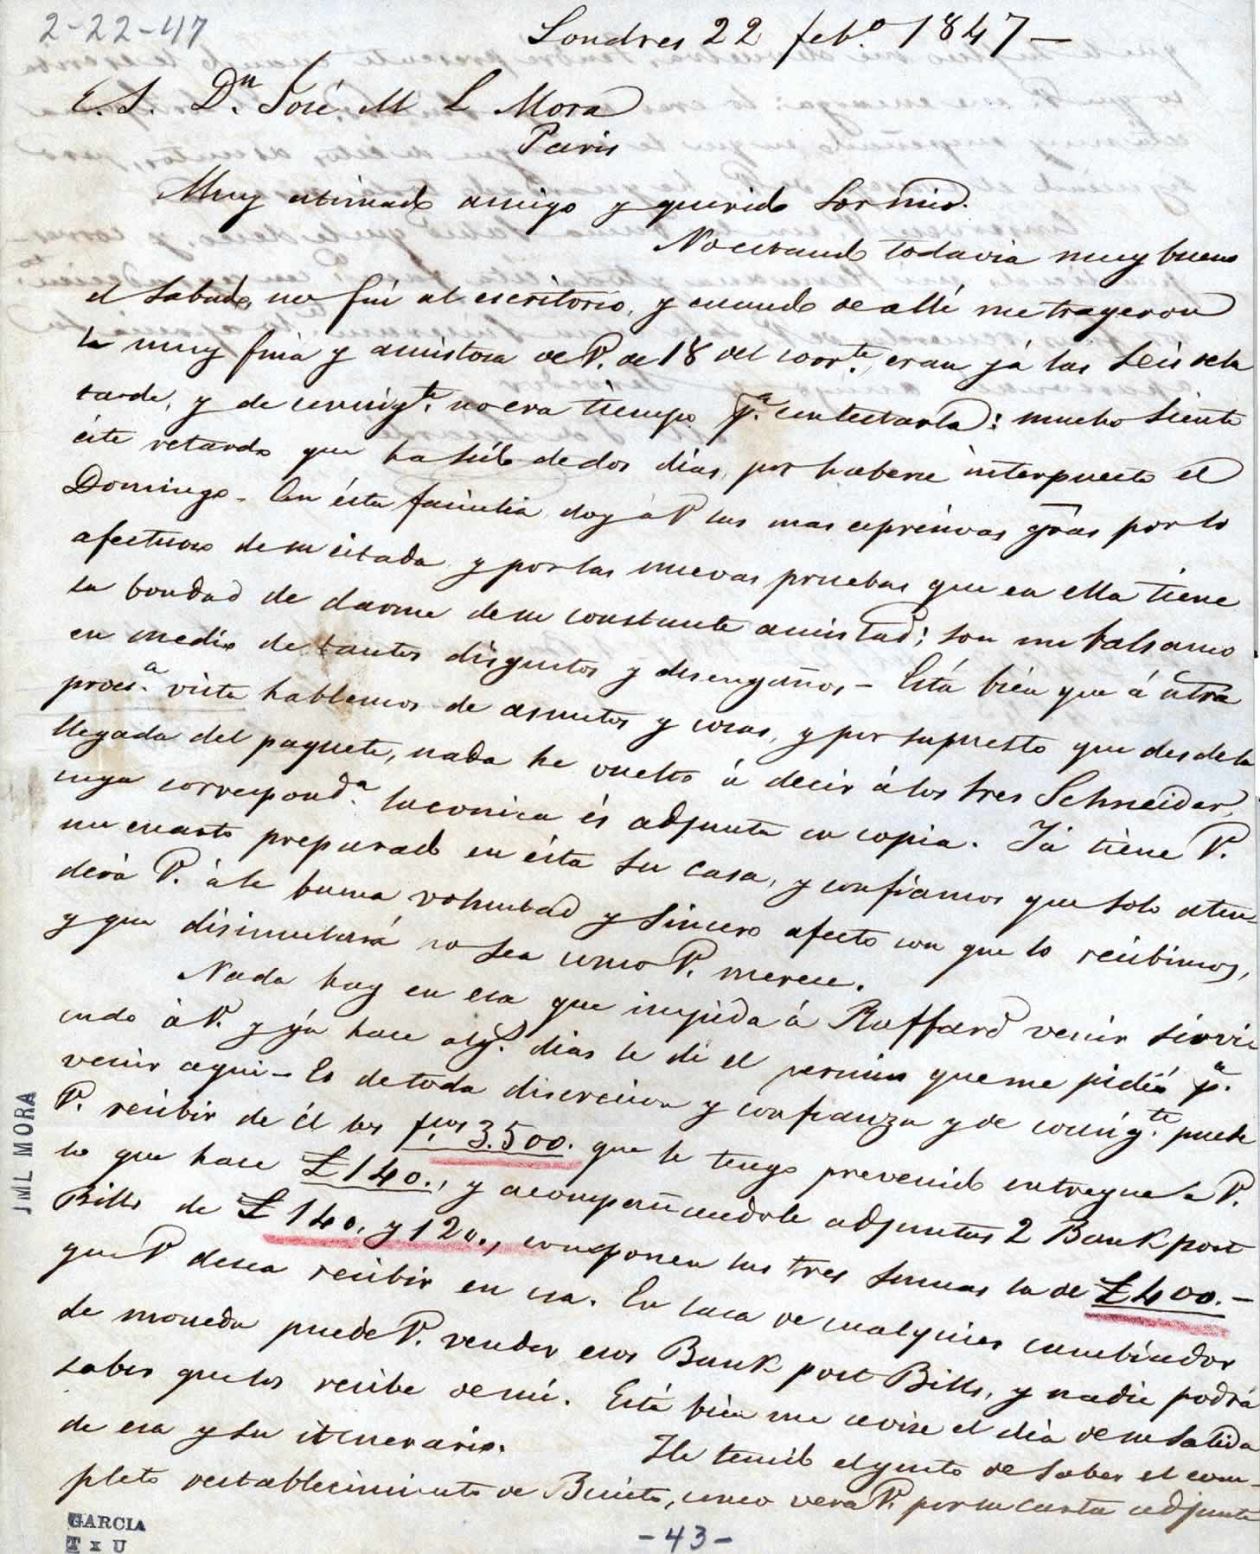 2-22-47
Londres 22 feb.o 1847—
E. S. Dn. José M L Mora
Paris
Muy estimado amigo y querido Sor mio.
No estando todavia muy bueno
el Sabado, no fui al escritorio, y cuando de allí me trageron
la muy fina y amistosa de V. de 18 del corrte. eran yá las Seis de la
tarde, y de consigte. no era tiempo pa. contestarla: mucho Siento
éste retardo que ha sido de dos dias, por haberse interpuesto el
Domingo. En ésta doy á V las mas expresivas gras por lo
afectuoso de su citada y por las nuevas pruebas que en ella tiene
la bondad de darme de su constante amistad; son un balsamo
en medio de tantos disgustos y desengaños — Está bien que á
vista hablemos de asuntos y cosas, y por supuesto que desde la
llegada del paquete, nada he vuelto á decir á los tres Schneider,
cuya correspondа. laconica és adjunta en copia. Yá tiene V.
un cuarto preparado en ésta Su casa, y confiamos que solo aten
derá V. á la buena voluntad y Sincero afecto con que lo recibimos,
y que disimulará no sea como V. merece.
Nada hay en esa que impida á Raffard venir Sirvi
endo á V. y yá hace algs. dias le dí el permiso que me pidió pa.
venir aqui — Es de toda discrecion y confianza y de consigte. puede
V. recibir de él los fcos 3.500. que le tengo prevenido entregue a V.
lo que hace £140., y acompañandole adjuntos 2 Bank post
Bills de £140. y 120., componen las tres Sumas la de £400.—
que V desea recibir en esa. En casa de cualquier cambiador
de moneda puede V. vender esos Bank post Bills, y nadie podrá
saber que los recibe de mí. Está bien me avise el dia de su Salida
de esa y Su itenerario. He tenido el gusto de Saber el com-
pleto restablecimiento de Benito, como verá V. por su carta adjunta
JML MORA
GARCIA
T x U
-43-